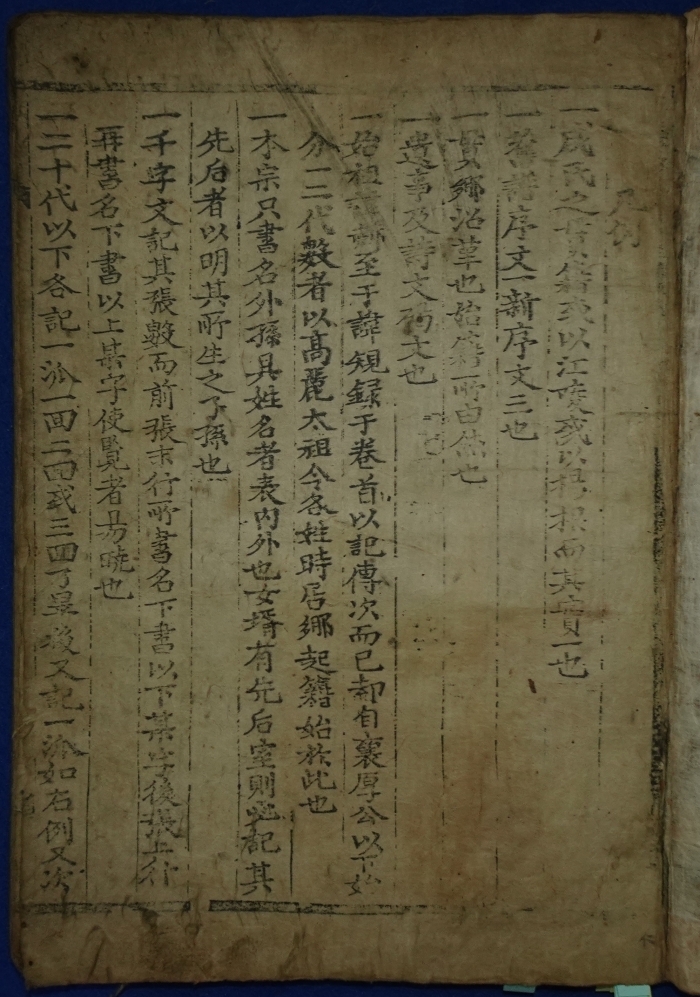 凡例
一 成氏之古籍或以江 或以 而其實一也
一 舊譜序文一新序文三也
一 貫鄕沿革也始 所由 也
一 遺事及詩文 文也
一 始祖 至于諱䂓録于卷首以記傳次而已却自襄厚公以下始
分一二代數者以高麗太祖令各姓時居鄕起籍始於此也
一 本宗只書名外孫具姓名者表內外也女壻有先后室則必記其
先后者以明其所生之子孫也
一 千字文記其張數而前張末行所書名下書以下某字後張上行
再書名下書以上某字使覽者易曉也
一 二十代以下各記一派一面二面或三四了畢後又記一派如右例又次